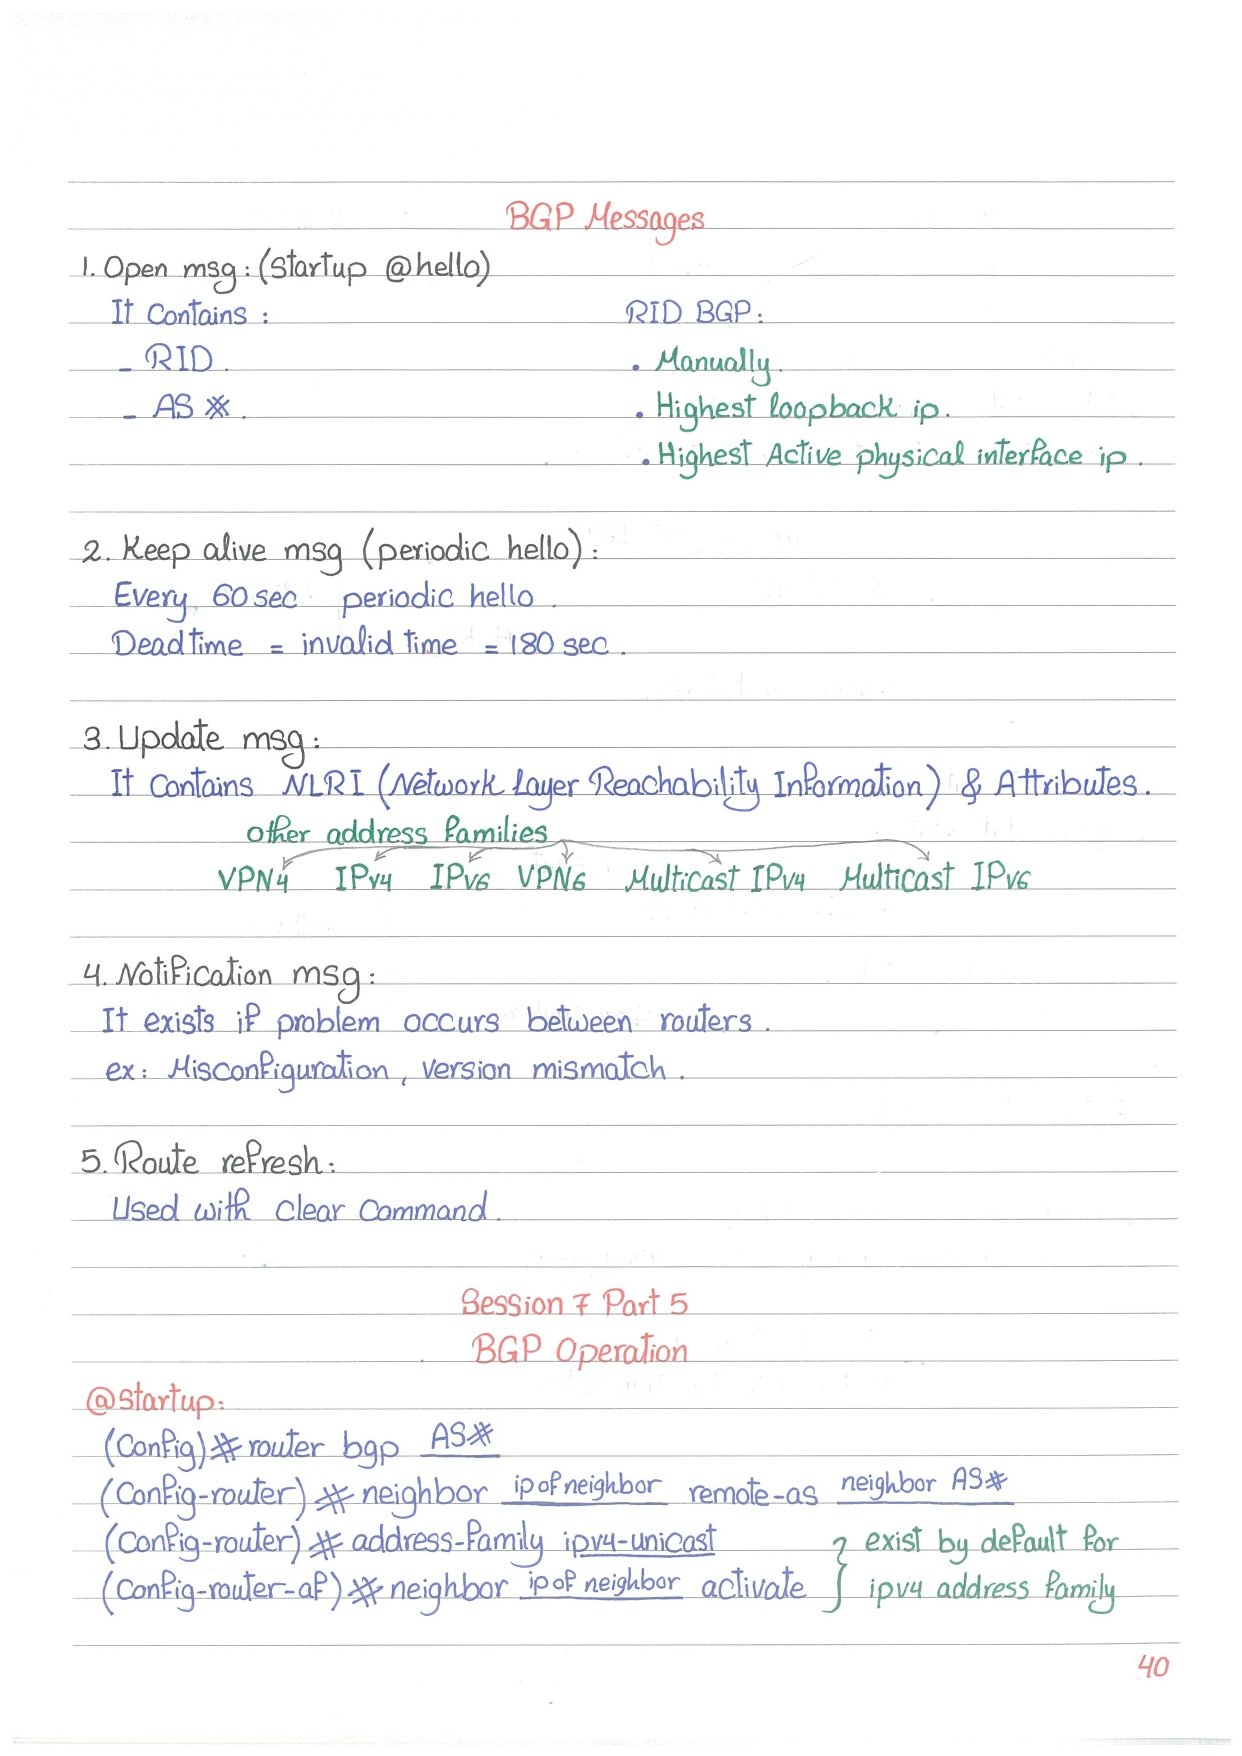 BGP Messages
1. Open msg: (Startup @hello)
It Contains :
RID BGP:
- RID.
• Manually.
- AS #.
• Highest loopback ip.
• Highest Active physical interface ip.
2. Keep alive msg (periodic hello):
Every 60 sec periodic hello.
Dead time = invalid time = 180 sec.
3. Update msg:
It Contains NLRI (Network Layer Reachability Information) & Attributes.
other address families
VPN4 IPv4 IPv6 VPN6 Multicast IPv4 Multicast IPv6
4. Notification msg:
It exists if problem occurs between routers.
ex: Misconfiguration, version mismatch.
5. Route refresh:
Used with Clear Command.
Session 7 Part 5
BGP Operation
@Startup:
(Config)# router bgp AS#
(Config-router)# neighbor ip of neighbor remote-as neighbor AS#
(Config-router)# address-family ipv4-unicast } exist by default for
(Config-router-af)# neighbor ip of neighbor activate } ipv4 address family
40